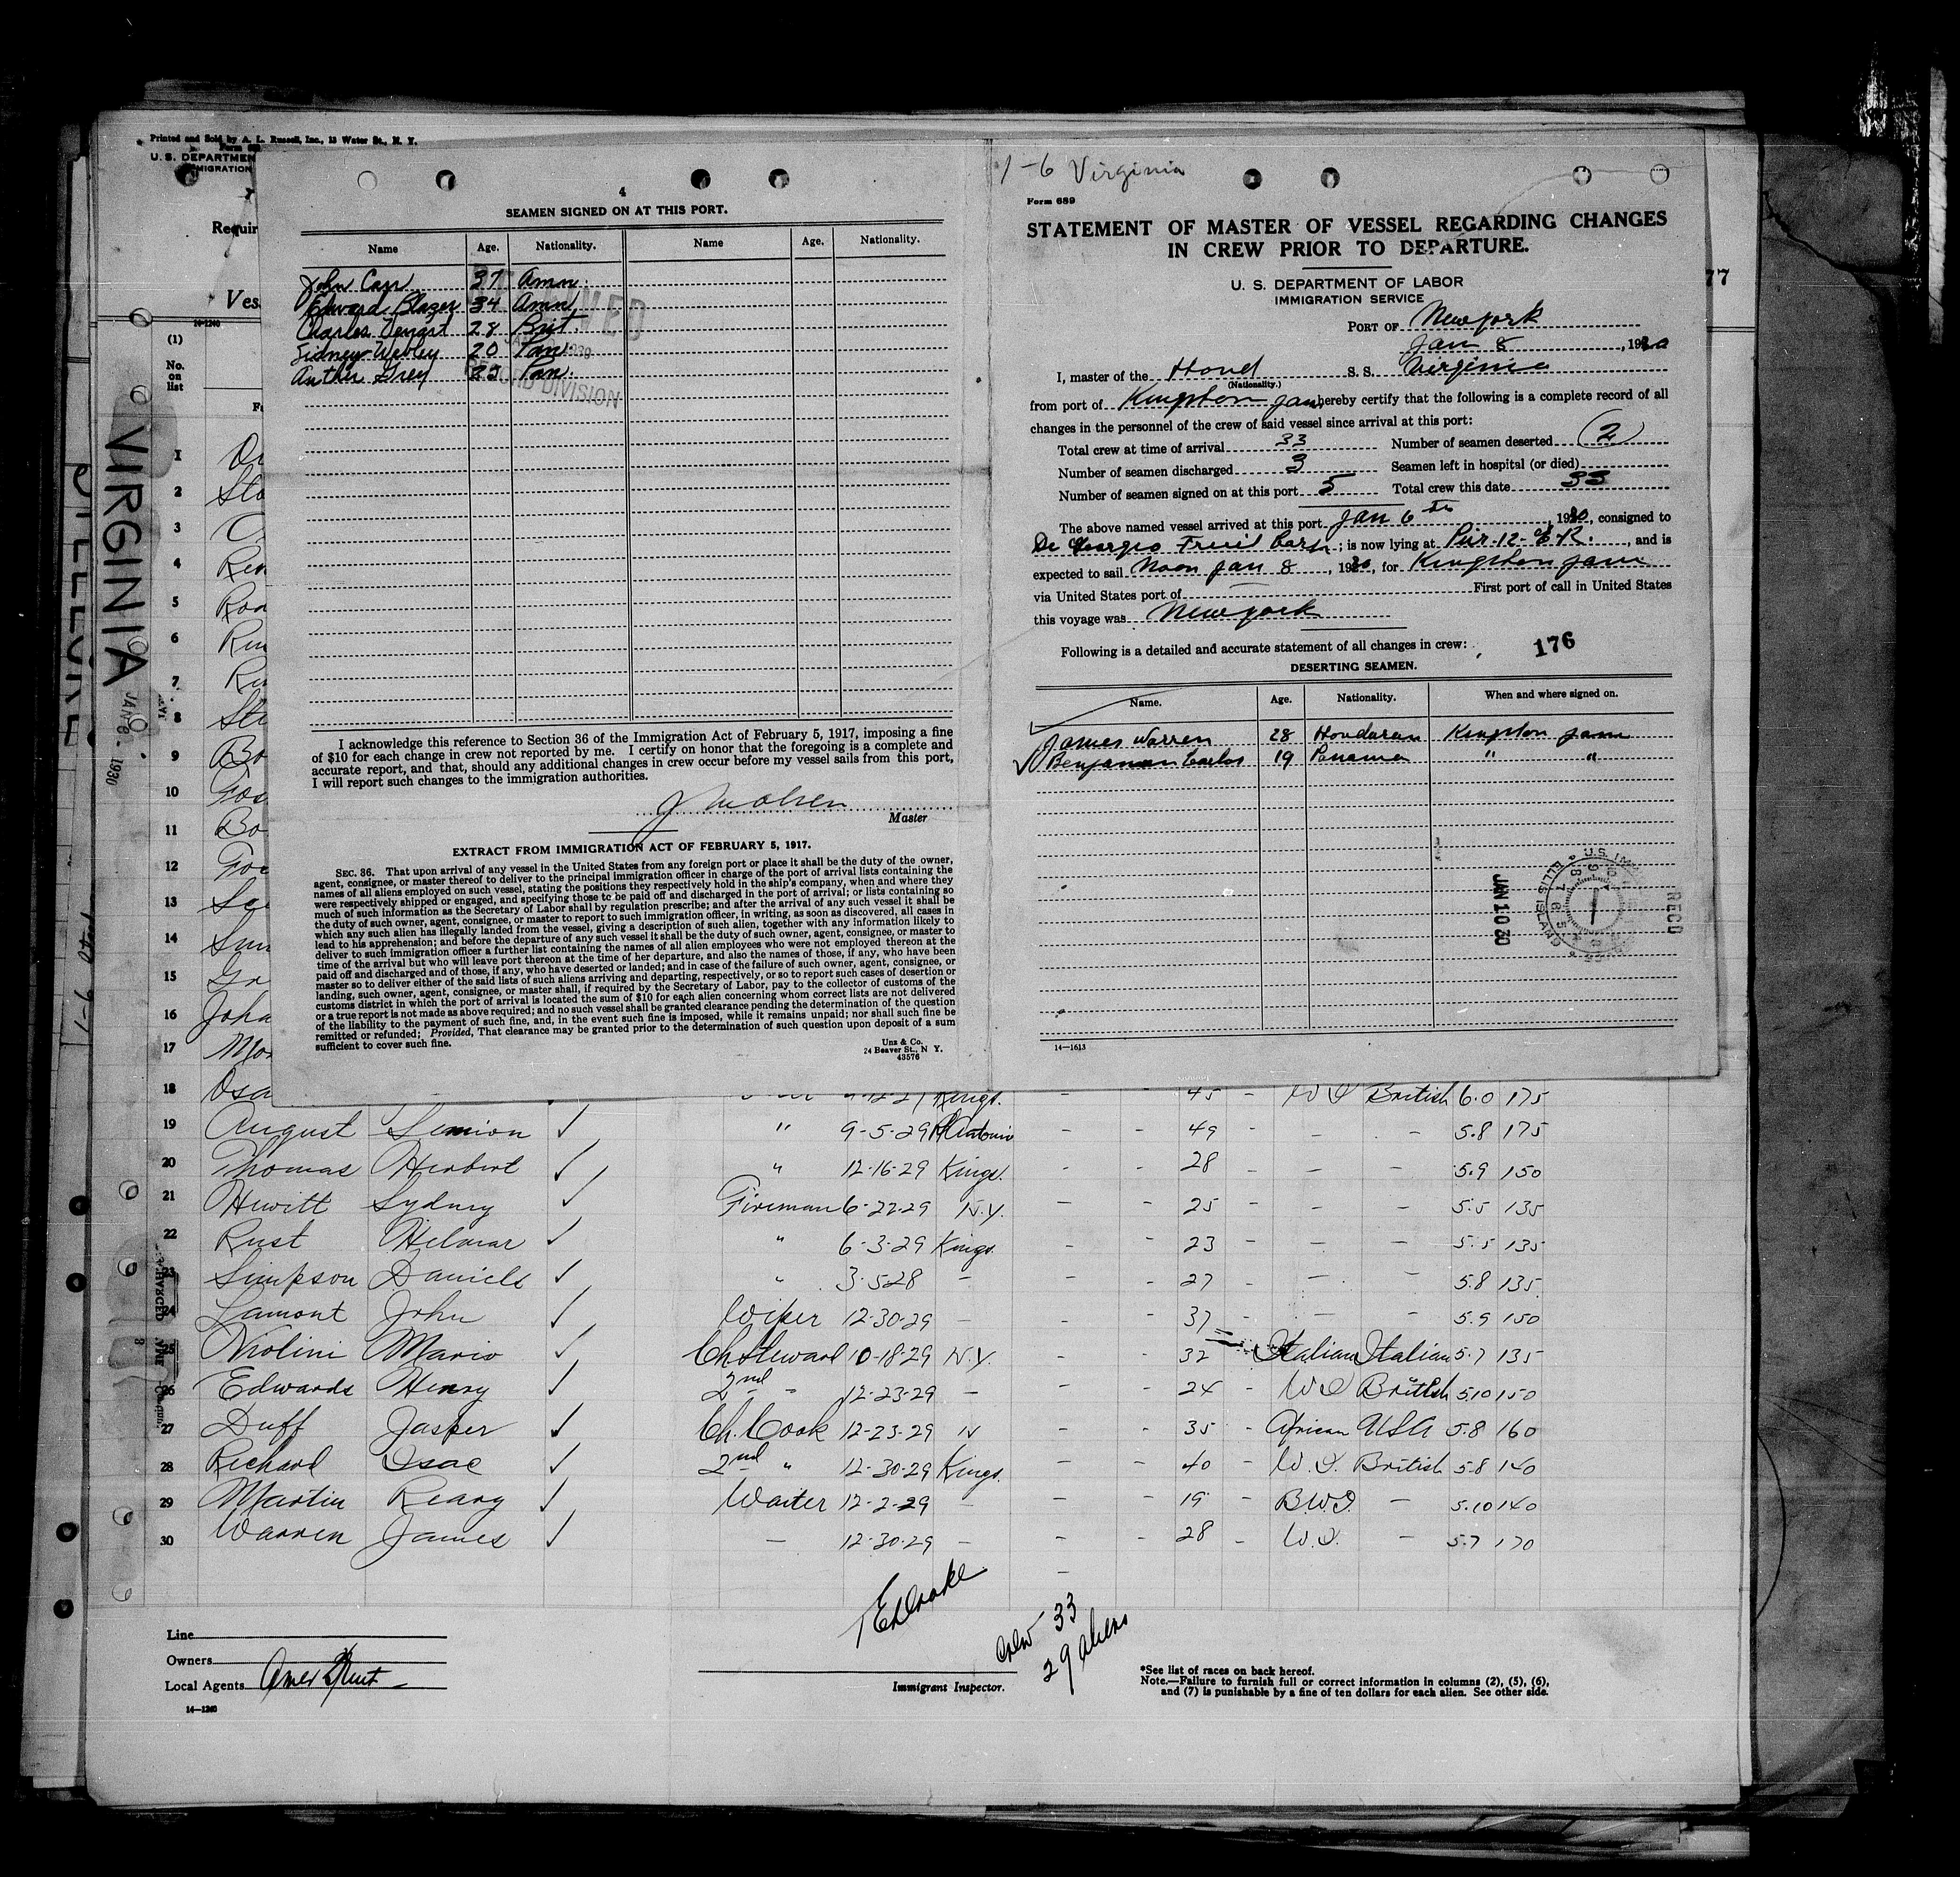 Printed and Sold by A. L. Russell, Inc., 13 Water St., N. Y.
U. S. DEPARTMEN
MIGRATION
Requir
Ves
14-1240
(1)
No.
on
list
VIRGINIA
JAN 6 1930
77
4
SEAMEN SIGNED ON AT THIS PORT.
Name Age. Nationality. Name Age. Nationality.
John Carr 37 Amn.
Edward Blazer 34 Amn
Charles 28 Brit.
Sidney Webley 20 Pan
Arther Grey 22 Pan.
I acknowledge this reference to Section 36 of the Immigration Act of February 5, 1917, imposing a fine
of $10 for each change in crew not reported by me. I certify on honor that the foregoing is a complete and
accurate report, and that, should any additional changes in crew occur before my vessel sails from this port,
I will report such changes to the immigration authorities.
Master
EXTRACT FROM IMMIGRATION ACT OF FEBRUARY 5, 1917.
SEC. 36. That upon arrival of any vessel in the United States from any foreign port or place it shall be the duty of the owner,
agent, consignee, or master thereof to deliver to the principal immigration officer in charge of the port of arrival lists containing the
names of all aliens employed on such vessel, stating the positions they respectively hold in the ship's company, when and where they
were respectively shipped or engaged, and specifying those to be paid off and discharged in the port of arrival; or lists containing so
much of such information as the Secretary of Labor shall by regulation prescribe; and after the arrival of any such vessel it shall be
the duty of such owner, agent, consignee, or master to report to such immigration officer, in writing, as soon as discovered, all cases in
which any such alien has illegally landed from the vessel, giving a description of such alien, together with any information likely to
lead to his apprehension; and before the departure of any such vessel it shall be the duty of such owner, agent, consignee, or master to
deliver to such immigration officer a further list containing the names of all alien employees who were not employed thereon at the
time of the arrival but who will leave port thereon at the time of her departure, and also the names of those, if any, who have been
paid off and discharged and of those, if any, who have deserted or landed; and in case of the failure of such owner, agent, consignee, or
master so to deliver either of the said lists of such aliens arriving and departing, respectively, or so to report such cases of desertion or
landing, such owner, agent, consignee, or master shall, if required by the Secretary of Labor, pay to the collector of customs of the
customs district in which the port of arrival is located the sum of $10 for each alien concerning whom correct lists are not delivered
or a true report is not made as above required; and no such vessel shall be granted clearance pending the determination of the question
of the liability to the payment of such fine, and, in the event such fine is imposed, while it remains unpaid; nor shall such fine be
remitted or refunded; Provided, That clearance may be granted prior to the determination of such question upon deposit of a sum
sufficient to cover such fine.
Unz & Co.
24 Beaver St., N Y.
43576
1-6 Virginia
Form 689
STATEMENT OF MASTER OF VESSEL REGARDING CHANGES
IN CREW PRIOR TO DEPARTURE.
U. S. DEPARTMENT OF LABOR
IMMIGRATION SERVICE
PORT OF New York
Jan 8, 1930
I, master of the Hond S. S. Virginia
(Nationality.)
from port of Kingston Jam hereby certify that the following is a complete record of all
changes in the personnel of the crew of said vessel since arrival at this port:
Total crew at time of arrival 33 Number of seamen deserted (2)
Number of seamen discharged 3 Seamen left in hospital (or died)
Number of seamen signed on at this port 5 Total crew this date 33
The above named vessel arrived at this port Jan 6th, 1930, consigned to
Di Georgio Fruit Corp; is now lying at Pier-12-E-R., and is
expected to sail Noon Jan 8, 1930, for Kingston Jam
via United States port of First port of call in United States
this voyage was New York
Following is a detailed and accurate statement of all changes in crew:
176
DESERTING SEAMEN.
Name. Age. Nationality. When and where signed on.
James Warren 28 Honduran Kingston Jam
Benjaman Carlos 19 Panama " "
JAN 10 30
REC'D
U.S. IMM
ELLIS ISLAND
14-1613
1
2
3
4
5
6
7
8
9
10
11
12
13
14
15
16 Joha
17
18 45 - W I British 6.0 175
19 August Simion ✓ " 9-5-29 - - 49 - - - 5.8 175
20 Thomas Herbert ✓ " 12-16-29 Kings. - - 28 - - 5.9 150
21 Hewitt Sydney ✓ Fireman 6-22-29 N.Y. - - 25 - - - 5.5 135
22 Rust Hilmar ✓ " 6-3-29 Kings. - - 23 - - - 5.5 135
23 Simpson Daniels ✓ " 3-5-28 - - 27 - - - 5.8 135
24 Lamont John ✓ Wiper 12-30-29 - - 37 - - - 5.9 150
25 Niolini Mario ✓ Ch Steward 10-18-29 N.Y. - 32 Italian Italian 5.7 135
26 Edwards Henry ✓ 2nd - 12-23-29 - - - 24 - W I British 5.10 150
27 Duff Jasper ✓ Ch. Cook 12-23-29 N - - 35 - African USA 5.8 160
28 Richard Isac ✓ 2nd " 12-30-29 Kings. - - 40 - W. I. British 5.8 140
29 Martin Reary ✓ Waiter 12-2-29 - - - 19 - B.W.I. - 5.10 140
30 Warren James ✓ - 12-30-29 - - - 28 - W. I. - 5.7 170
Crew 33
29 aliens
Line
Owners
Local Agents
Immigrant Inspector.
*See list of races on back hereof.
Note.—Failure to furnish full or correct information in columns (2), (5), (6),
and (7) is punishable by a fine of ten dollars for each alien. See other side.
14-1240